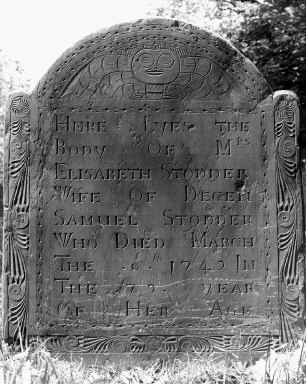 Here Lyes the
Body Of Mrs
Elisabeth Stodder
Wife Of Decen
Samuel Stodder
Who Died March
The .6.th 1749 In
The 79. year
Of Her Age